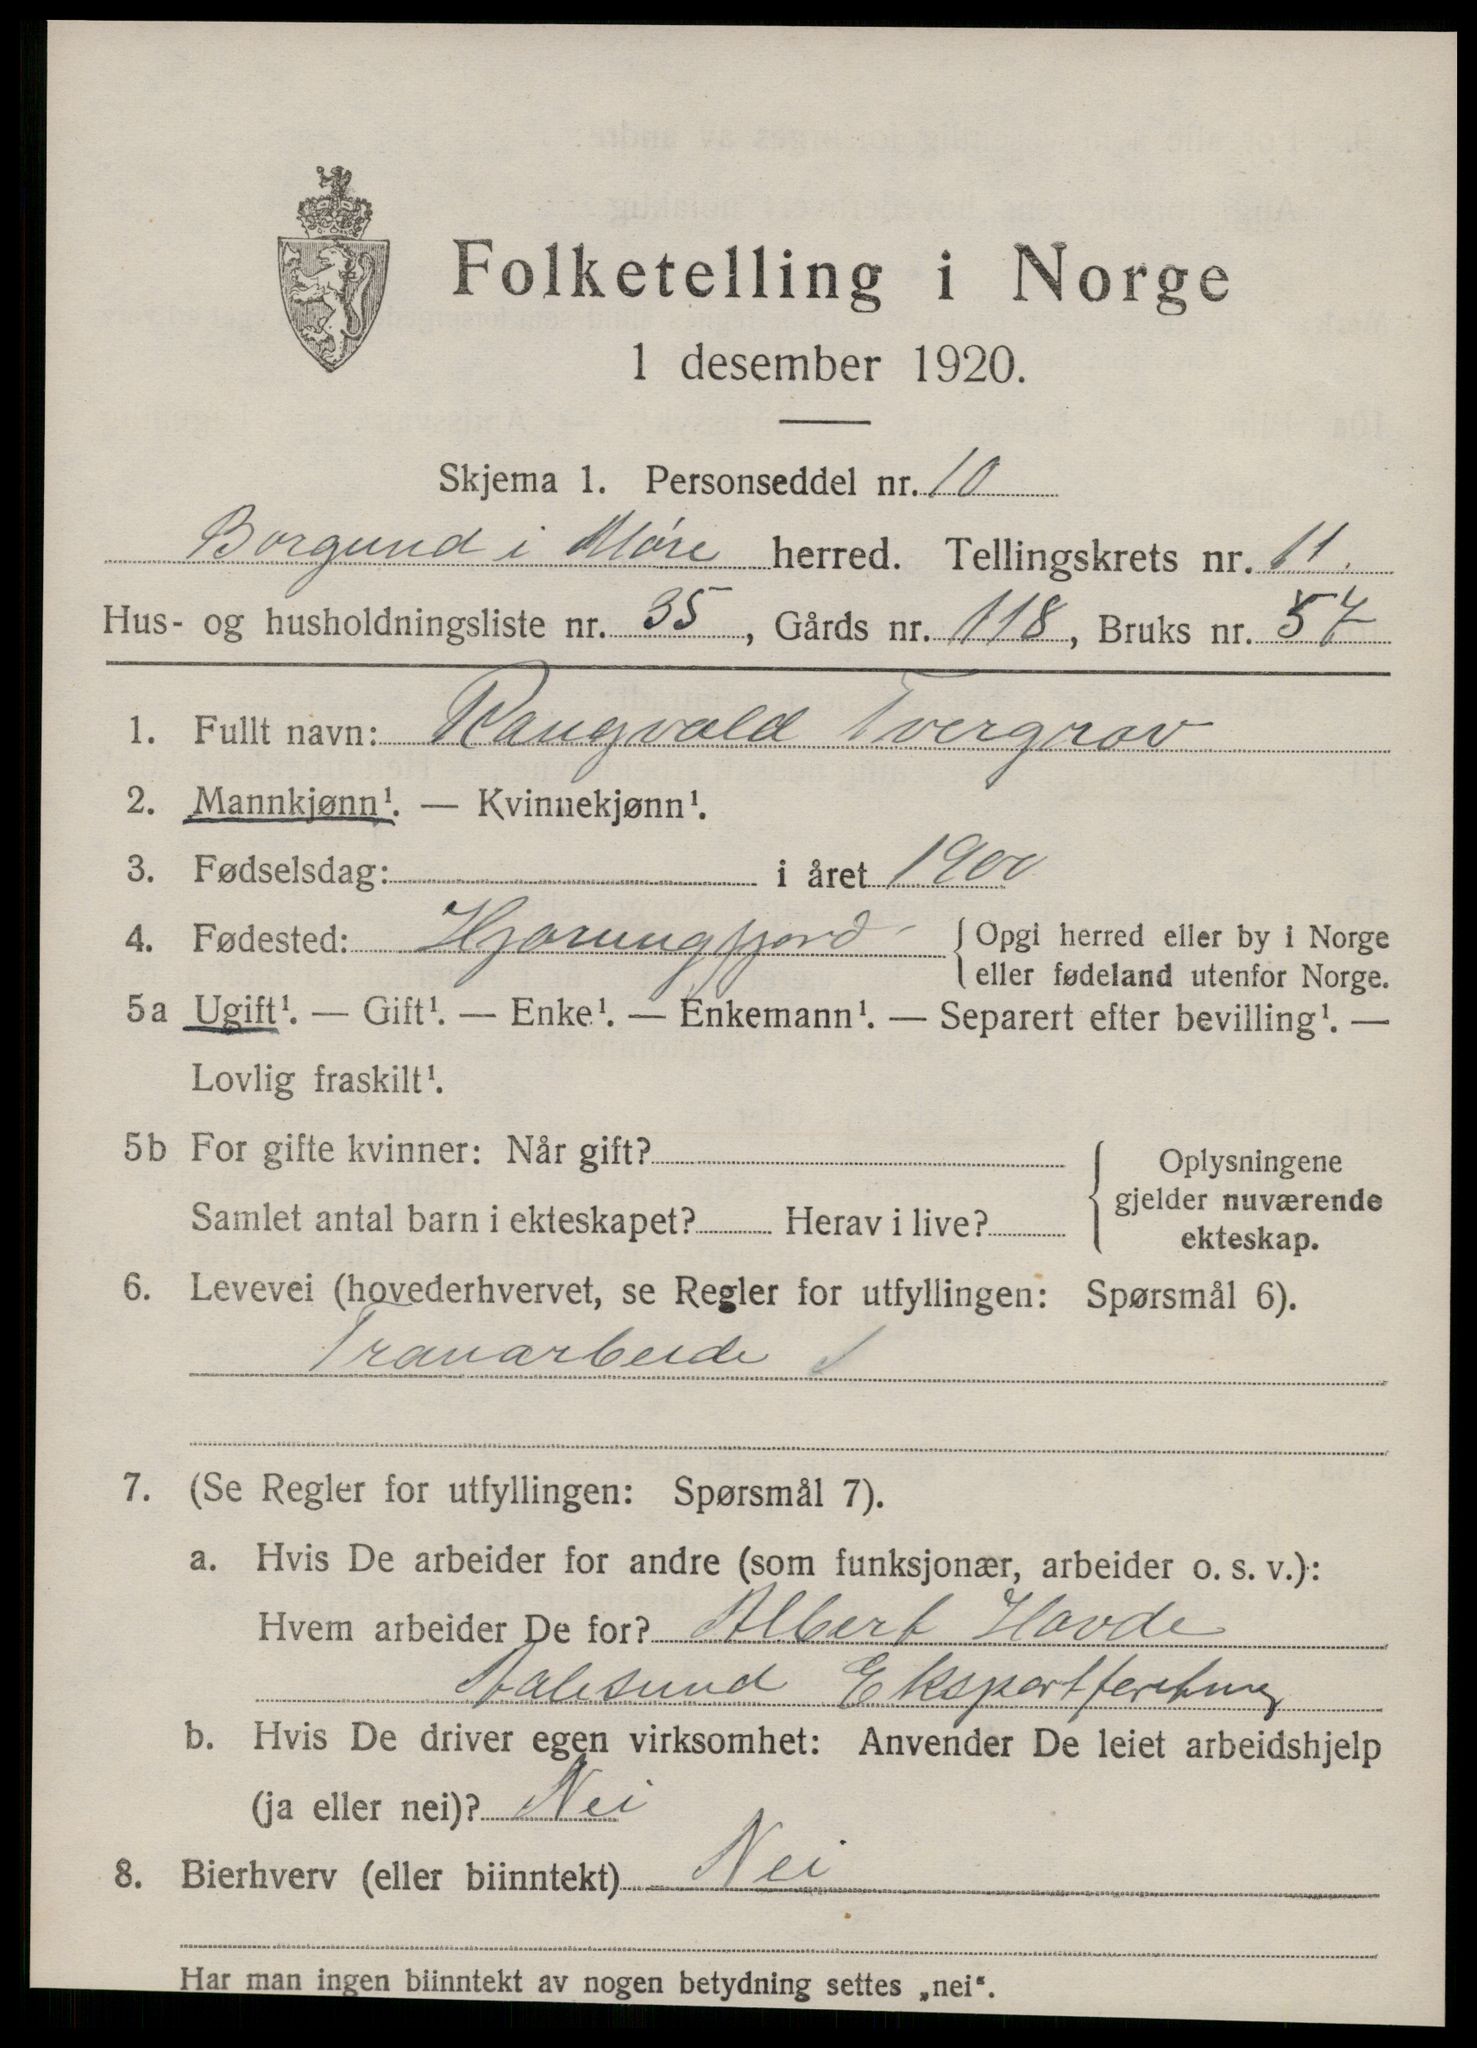 Folketelling i Norge
1 desember 1920.
Skjema 1. Personseddel nr. 10
Borgund i Møre herred. Tellingskrets nr. 11.
Hus- og husholdningsliste nr. 35, Gårds nr. 118, Bruks nr. 57
1. Fullt navn: Rangvald Tvergrov
2. Mannkjønn¹. — Kvinnekjønn¹.
3. Fødselsdag: i året 1900
4. Fødested: Hjørungfjord { Opgi herred eller by i Norge
eller fødeland utenfor Norge.
5a Ugift¹. — Gift¹. — Enke¹. — Enkemann¹. — Separert efter bevilling¹. —
Lovlig fraskilt¹.
5b For gifte kvinner: Når gift?
Samlet antal barn i ekteskapet? Herav i live?
{ Oplysningene
gjelder nuværende
ekteskap.
6. Levevei (hovederhvervet, se Regler for utfyllingen: Spørsmål 6).
Tranarbeide
7. (Se Regler for utfyllingen: Spørsmål 7).
a. Hvis De arbeider for andre (som funksjonær, arbeider o. s. v.):
Hvem arbeider De for? Albert Hovde
Aalesund Eksportforetning
b. Hvis De driver egen virksomhet: Anvender De leiet arbeidshjelp
(ja eller nei)? Nei
8. Bierhverv (eller biinntekt) Nei
Har man ingen biinntekt av nogen betydning settes „nei“.